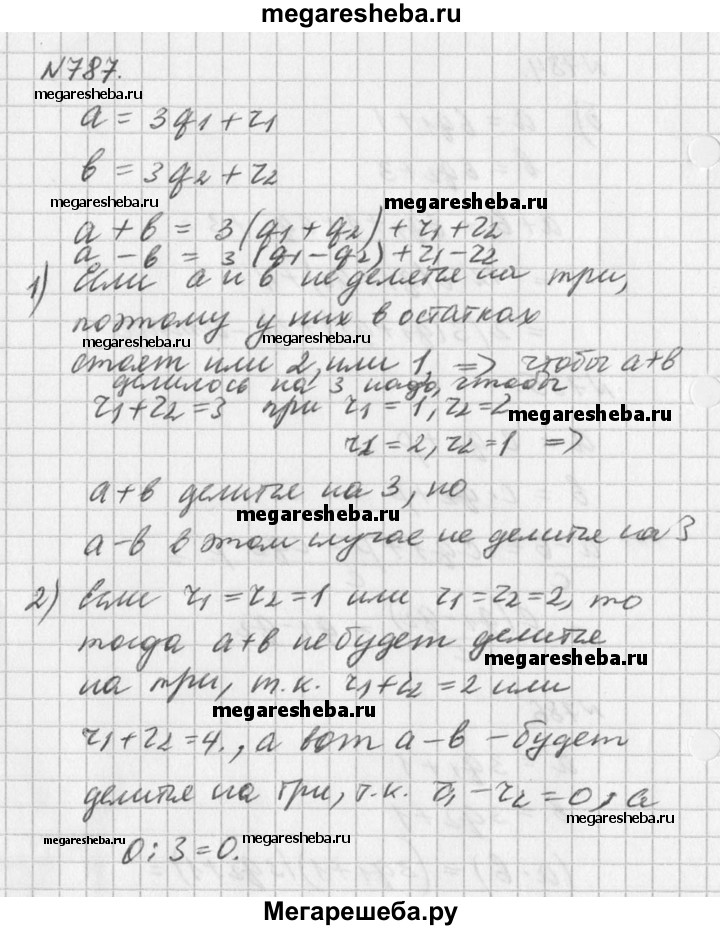 megaresheba.ru
N787.
megaresheba.ru
a = 3q1 + r1
b = 3q2 + r2
megaresheba.ru
megaresheba.ru
a + b = 3(q1 + q2) + r1 + r2
a - b = 3(q1 - q2) + r1 - r2
1) Если a и b не делятся на три,
поэтому у них в остатках
megaresheba.ru
megaresheba.ru
стоят или 2, или 1, => чтобы a+b
делилось на 3 надо, чтобы
r1 + r2 = 3 при r1 = 1, r2 = 2
megaresheba.ru
r1 = 2, r2 = 1 =>
a+b делится на 3, но
megaresheba.ru
a-b в этом случае не делится на 3
2) Если r1 = r2 = 1 или r1 = r2 = 2, то
тогда a+b не будет делится
megaresheba.ru
на три, т.к. r1 + r2 = 2 или
megaresheba.ru
r1 + r2 = 4., а вот a-b - будет
делится на три, т.к. r1 - r2 = 0, а
megaresheba.ru
0 : 3 = 0.
megaresheba.ru
megaresheba.ru
Мегарешеба.ру